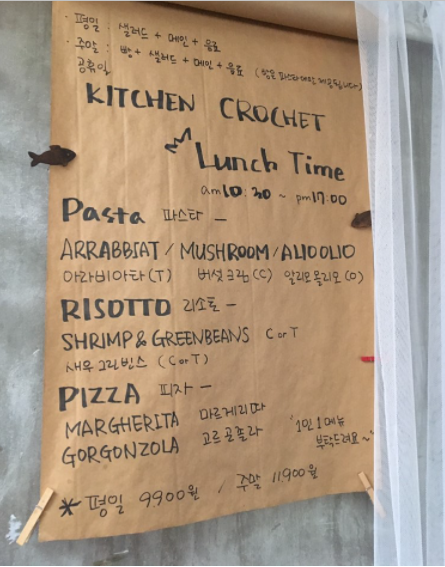 · 평일 : 샐러드 + 메인 + 음료
· 주말 : 빵 + 샐러드 + 메인 + 음료 (빵은 파스타에만 제공됩니다)
공휴일
KITCHEN CROCHET
Lunch Time
am10:30 ~ pm17:00
Pasta 파스타 –
ARRABBIAT / MUSHROOM / ALIOOLIO
아라비아타(T) 버섯크림(C) 알리오올리오(O)
RISOTTO 리소토 –
SHRIMP & GREENBEANS C or T
새우 그린빈스 (C or T)
PIZZA 피자 –
MARGHERITA 마르게리따
GORGONZOLA 고르곤졸라
1인 1메뉴
부탁드려요~
* 평일 9900원 / 주말 11,900원